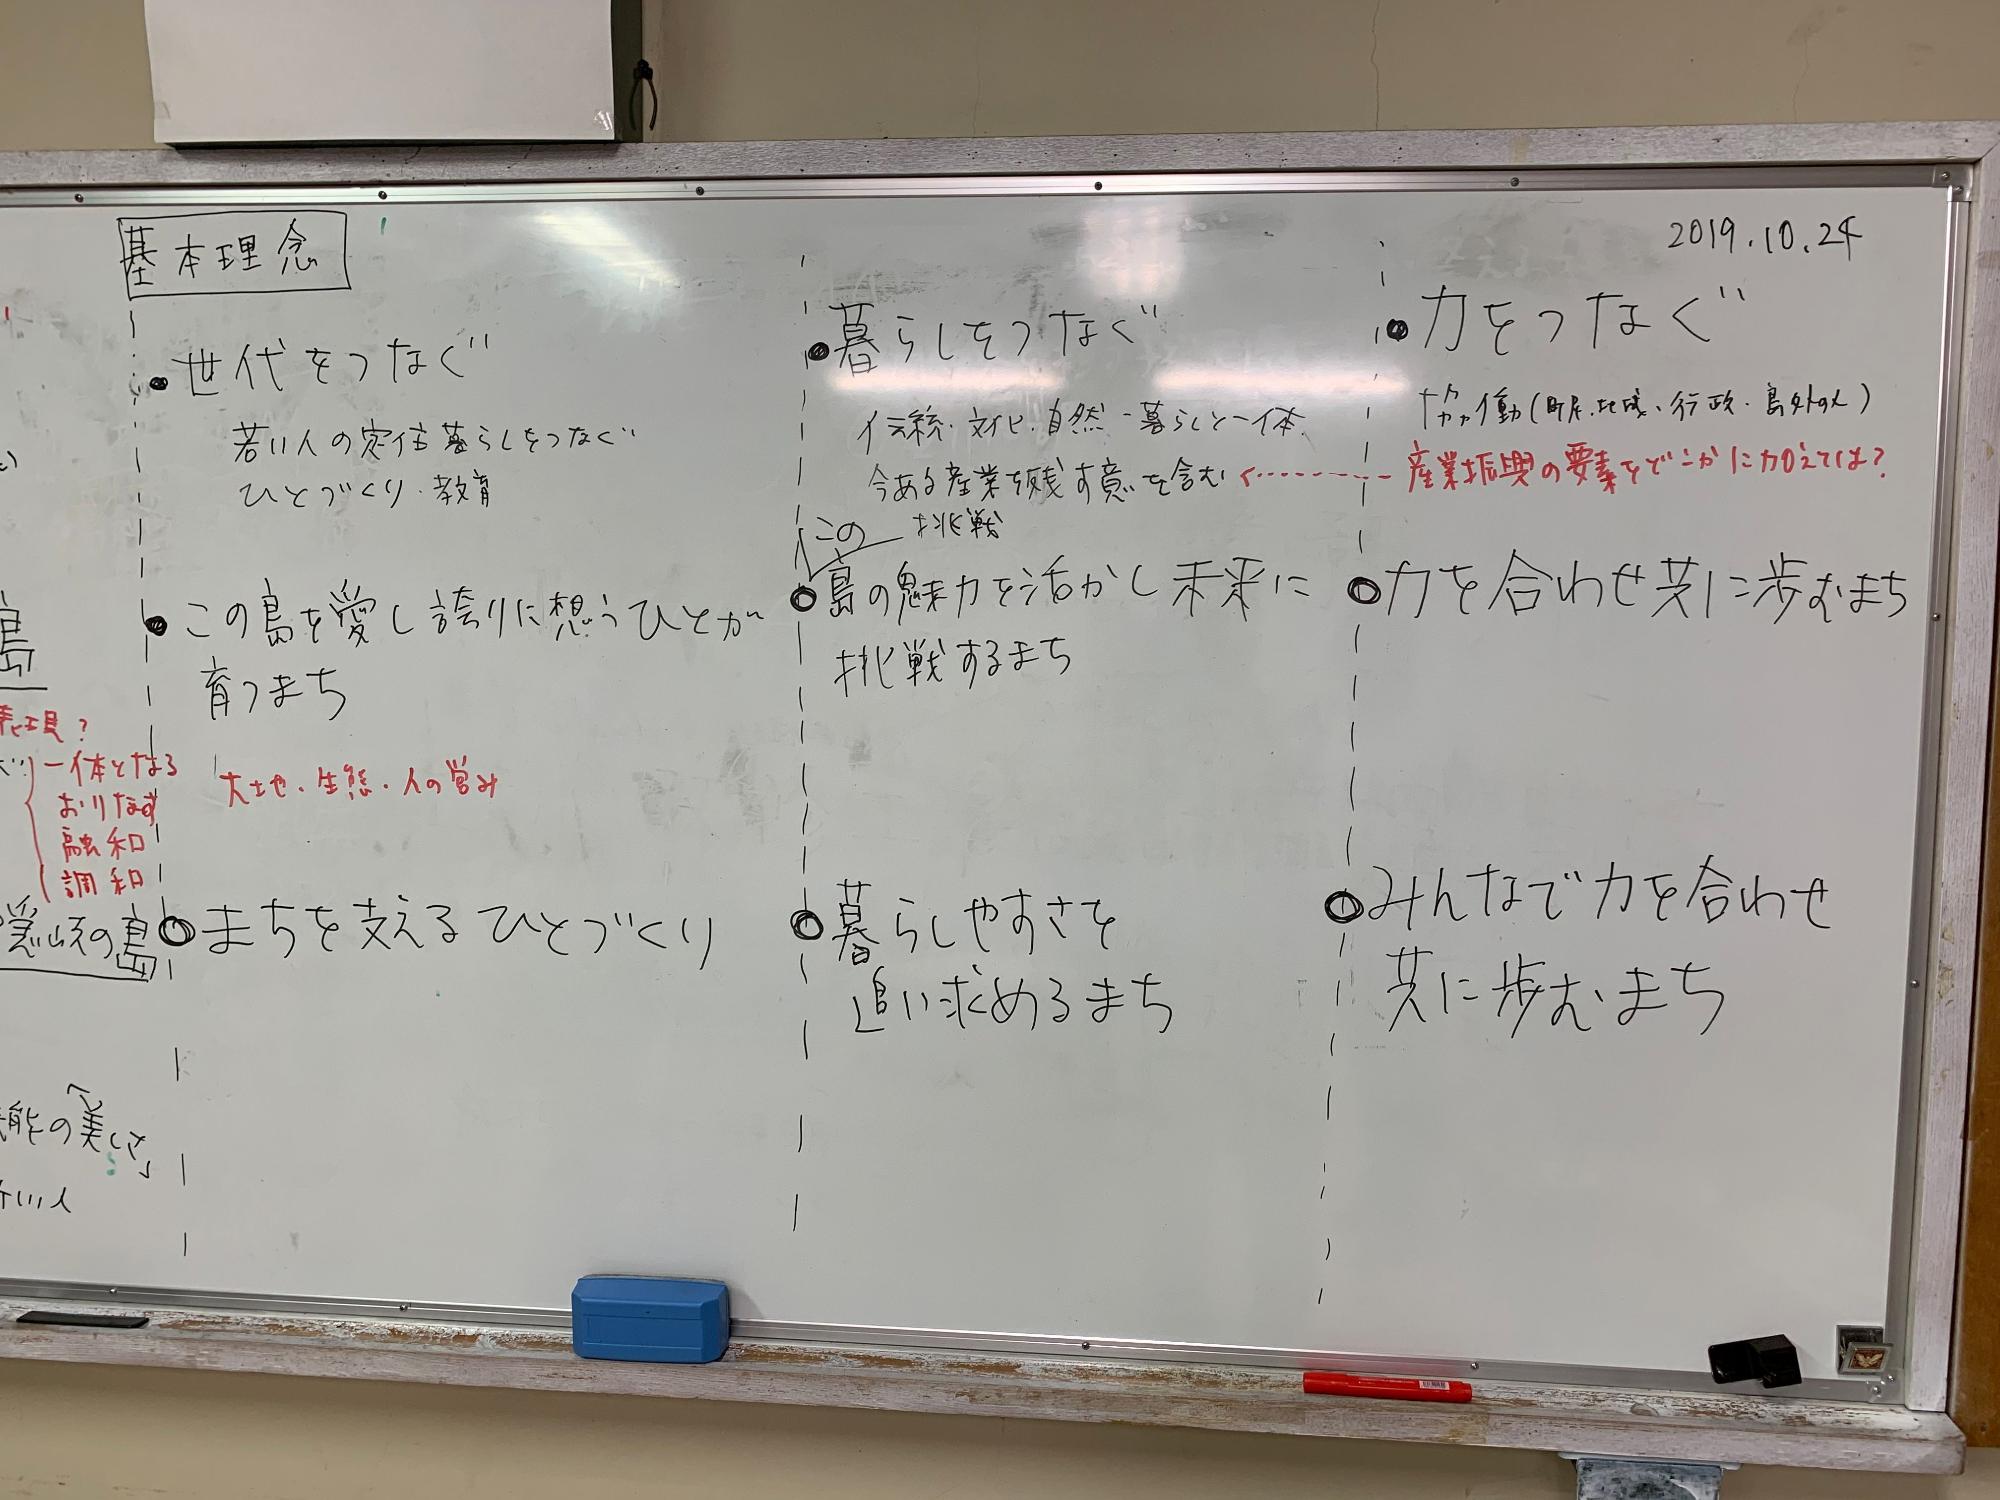 基本理念
2019.10.24
世代をつなぐ
若い人の定住 暮らしをつなぐ
ひとづくり・教育
この島を愛し誇りに想うひとが
育つまち
大地・生態・人の営み
まちを支えるひとづくり
暮らしをつなぐ
伝統・文化・自然-暮らしと一体
今ある産業を残す意を含む
挑戦
この
島の魅力を活かし未来に
挑戦するまち
暮らしやすさを
追い求めるまち
力をつなぐ
協働(町民・地域・行政・島外の人)
産業振興の要素をどこかに加えては?
力を合わせ共に歩むまち
みんなで力を合わせ
共に歩むまち
島
?
一体となる
おりなす
融和
調和
隠岐の島
能の美しさ」
人